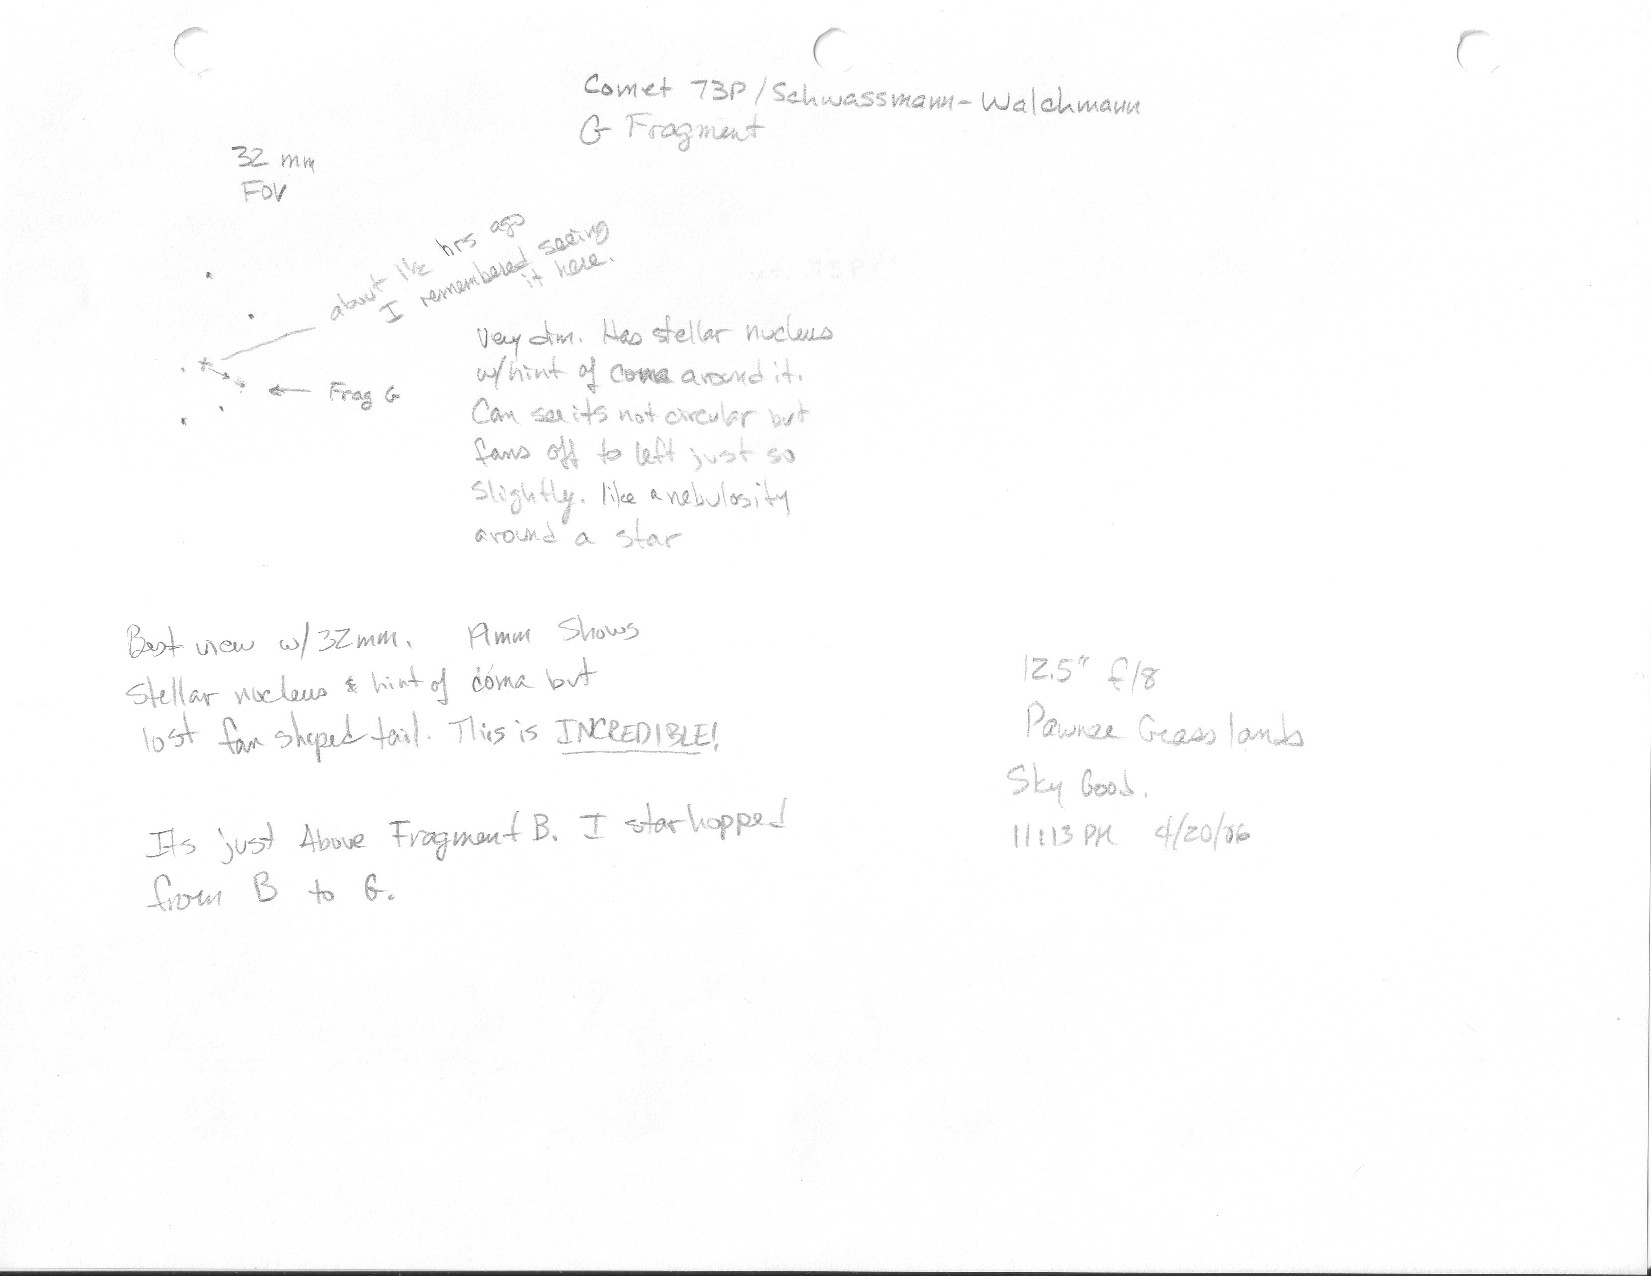 Comet 73P/Schwassmann-Walchmann
G Fragment
32 mm
FOV
about hrs ago
I remembered seeing
it here.
Frag G
Very dim. Has stellar nucleus
w/hint of coma around it.
Can see its not circular but
fans off to left just so
slightly. like a nebulosity
around a star
Best view w/32mm. 19mm Shows
Stellar nucleus & hint of coma but
lost fan shaped tail. This is INCREDIBLE!
Its just Above Fragment B. I starhopped
from B to G.
12.5" f/8
Pawnee Grasslands
Sky Good.
11:13 PM 4/20/06